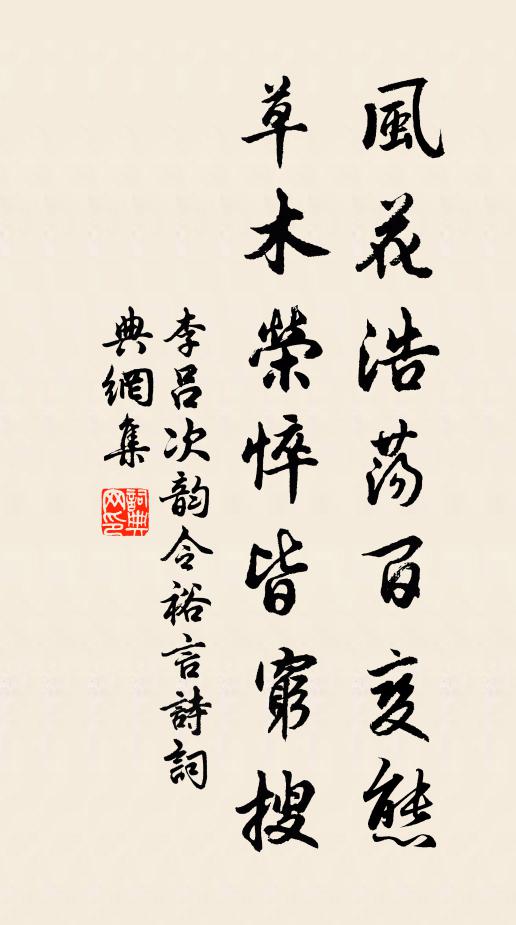 風花浩蕩百变態
草木榮悴皆窮搜
李吕次韵令裕言詩詞
典網集
詞典网印